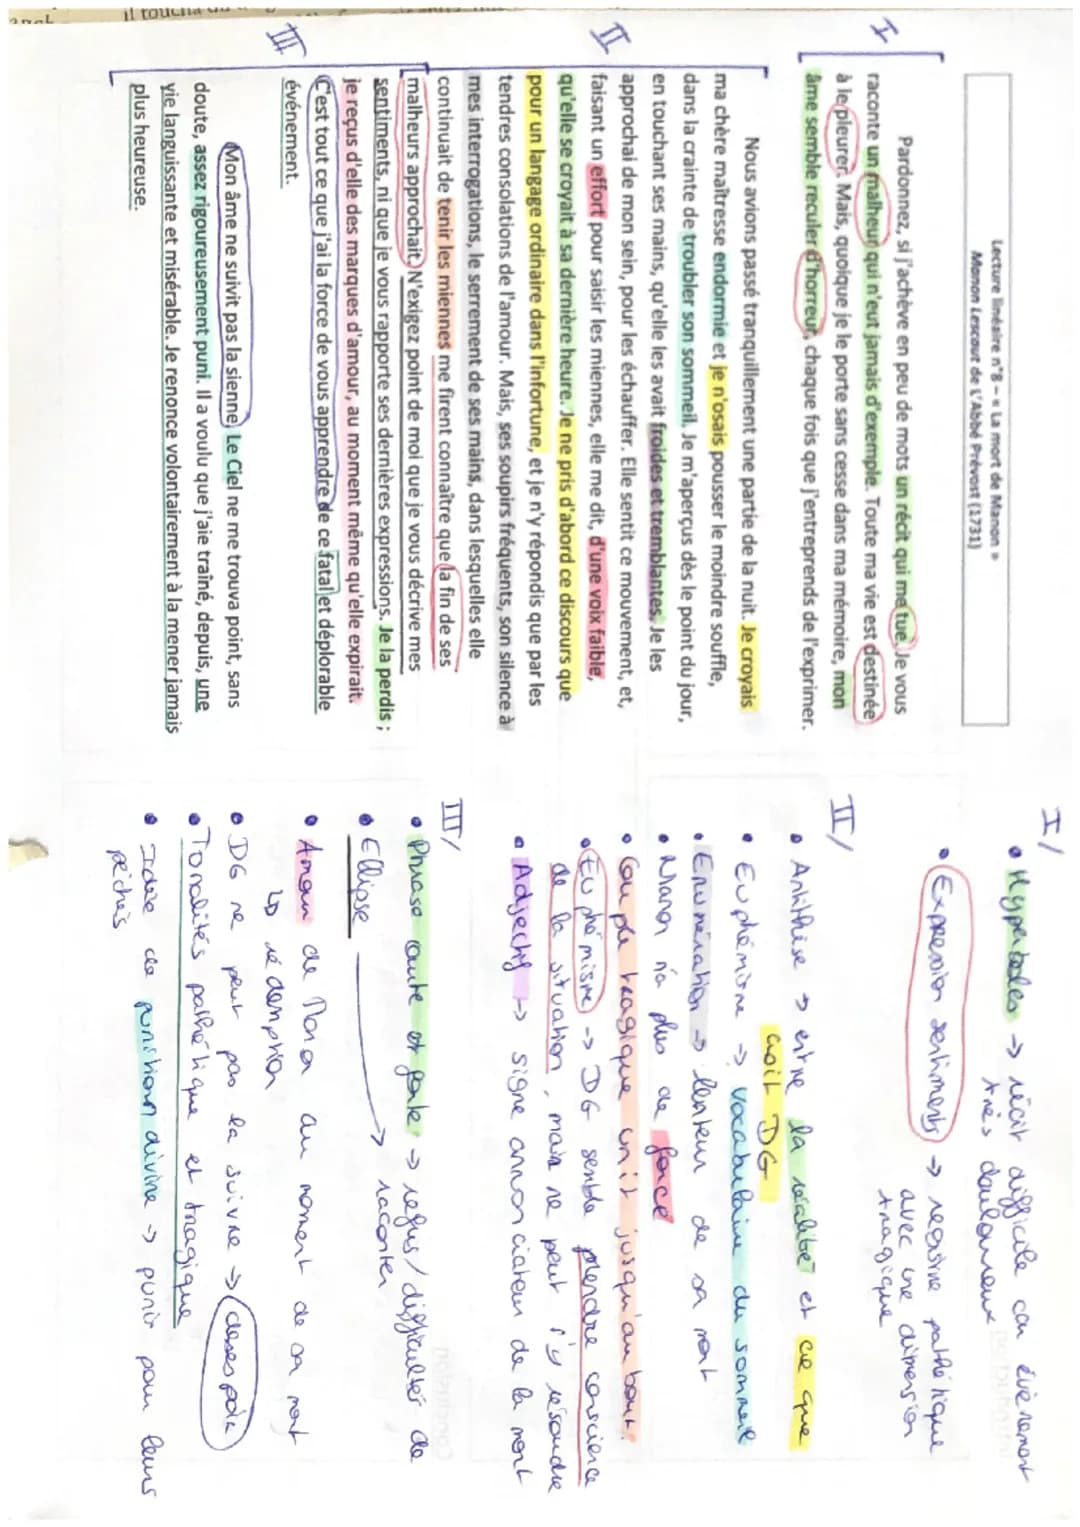 il toucha
Lecture linéaire n°8 – « La mort de Manon »
Manon Lescaut de L'Abbé Prévost (1731)
I
Pardonnez, si j'achève en peu de mots un récit qui me tue. Je vous
raconte un malheur qui n'eut jamais d'exemple. Toute ma vie est destinée
à le pleurer. Mais, quoique je le porte sans cesse dans ma mémoire, mon
âme semble reculer d'horreur, chaque fois que j'entreprends de l'exprimer.
Nous avions passé tranquillement une partie de la nuit. Je croyais
ma chère maîtresse endormie et je n'osais pousser le moindre souffle,
dans la crainte de troubler son sommeil. Je m'aperçus dès le point du jour,
en touchant ses mains, qu'elle les avait froides et tremblantes. Je les
approchai de mon sein, pour les échauffer. Elle sentit ce mouvement, et,
II
faisant un effort pour saisir les miennes, elle me dit, d'une voix faible,
qu'elle se croyait à sa dernière heure. Je ne pris d'abord ce discours que
pour un langage ordinaire dans l'infortune, et je n'y répondis que par les
tendres consolations de l'amour. Mais, ses soupirs fréquents, son silence à
mes interrogations, le serrement de ses mains, dans lesquelles elle
continuait de tenir les miennes me firent connaître que la fin de ses
malheurs approchait. N'exigez point de moi que je vous décrive mes
sentiments, ni que je vous rapporte ses dernières expressions. Je la perdis ;
je reçus d'elle des marques d'amour, au moment même qu'elle expirait.
C'est tout ce que j'ai la force de vous apprendre de ce fatal et déplorable
III
événement.
Mon âme ne suivit pas la sienne. Le Ciel ne me trouva point, sans
doute, assez rigoureusement puni. Il a voulu que j'aie traîné, depuis, une
vie languissante et misérable. Je renonce volontairement à la mener jamais
plus heureuse.
I/
• Hyperboles → récit difficile car évènement
très douloureux
• Expression sentiments → registre pathétique
avec une dimension
tragique
II/
• Antithèse → entre la réalité et ce que
croit DG
• Euphémisme → vocabulaire du sommeil
• Enumération → lenteur de sa mort
• Manon n'a plus de force
• Couple tragique unit jusqu'au bout.
• Euphémisme → DG semble prendre conscience
de la situation, mais ne peut s'y résoudre
• Adjectif → signe annonciateur de la mort
III/
• Phrase courte et forte → refus/difficultés de
• Ellipse → raconter
• Amour de Manon au moment de sa mort
↳ rédemption
• DG ne peut pas la suivre → désespoir
• Tonalités pathétique et tragique
• Idée de punition divine → punir pour leurs
péchés